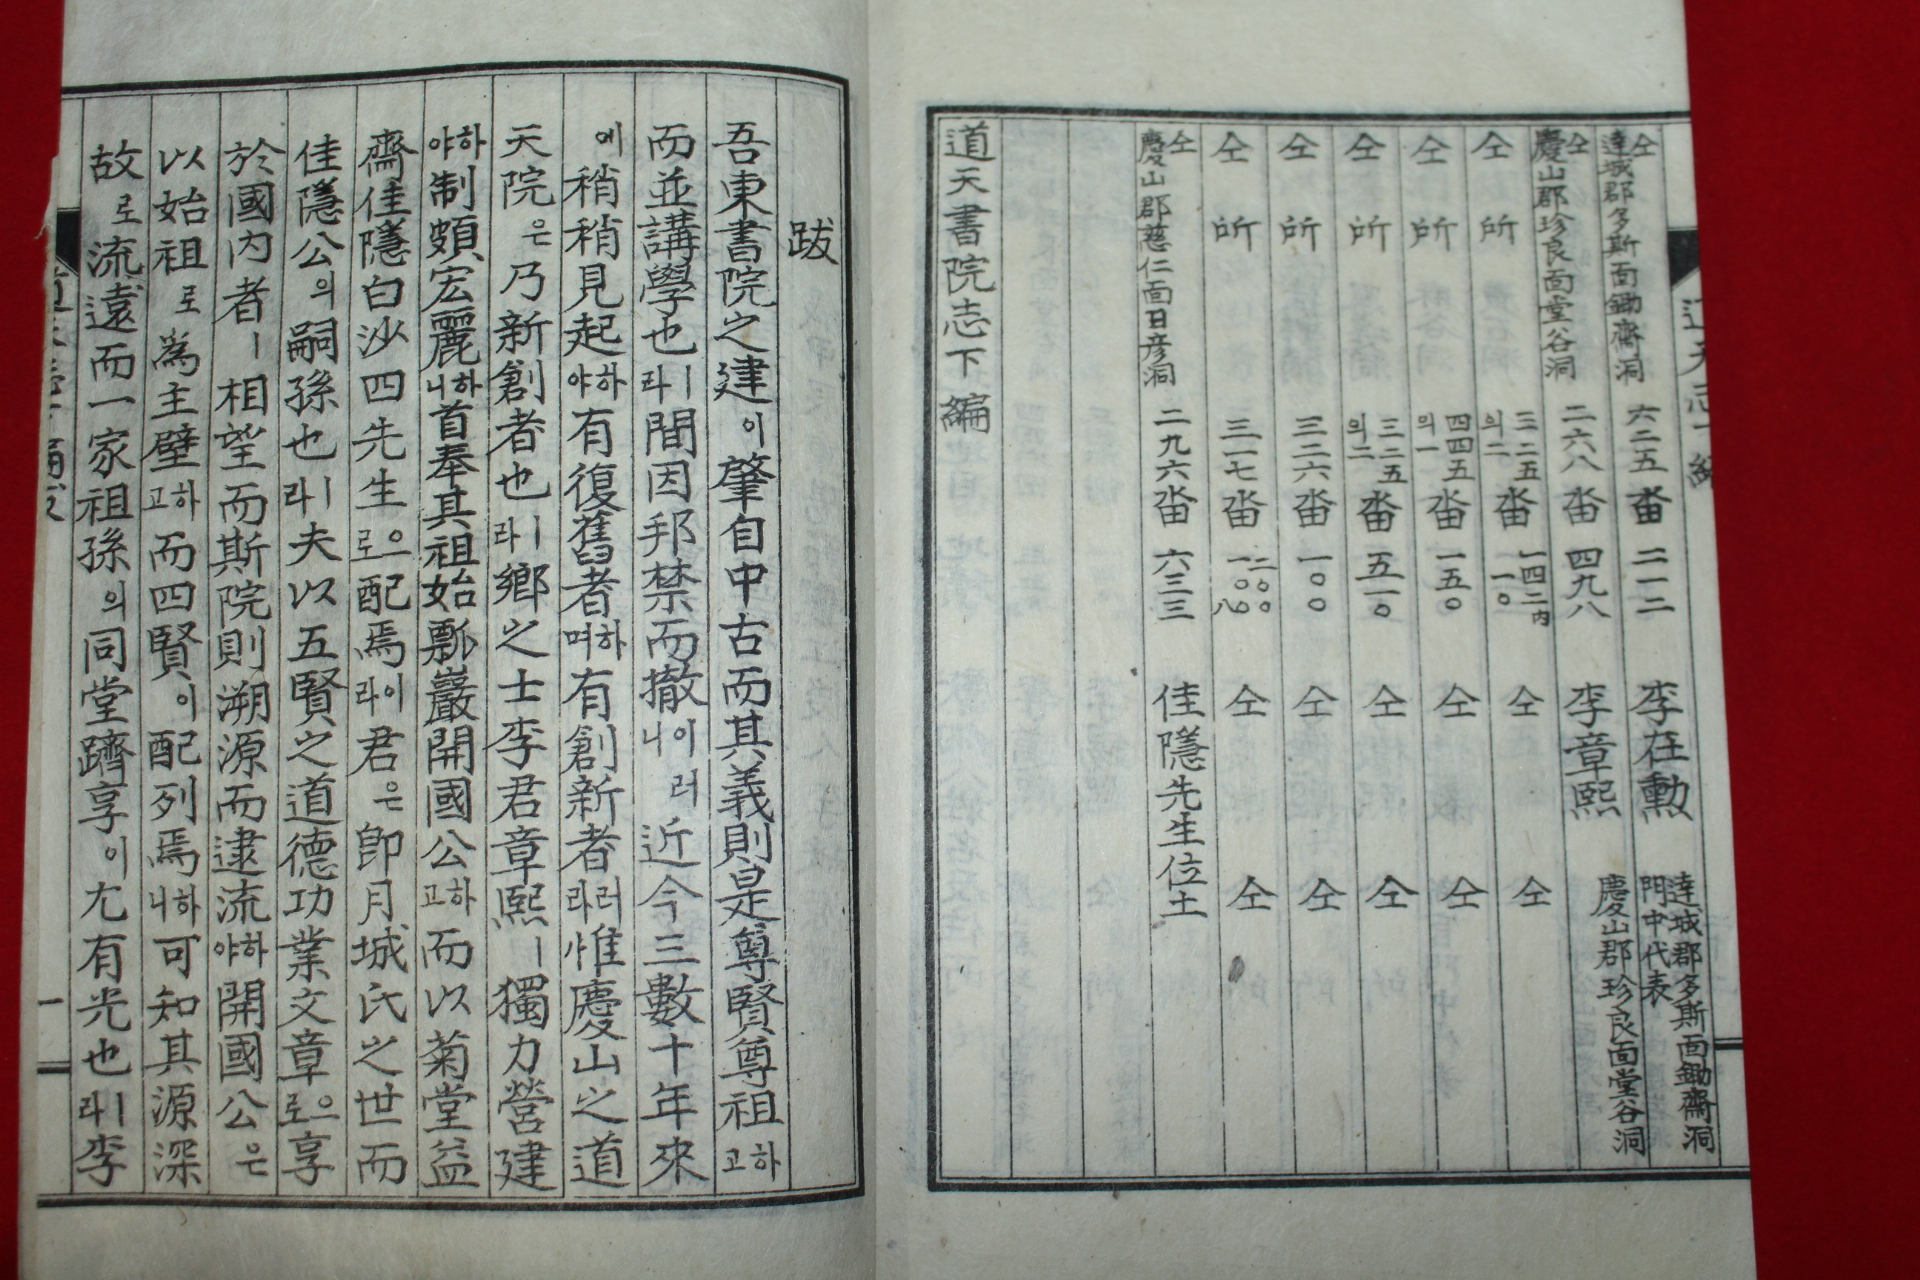 仝達城郡多斯面鋤齋洞 六二五 畓 二一二 李在勳 達城郡多斯面鋤齋洞門中代表
仝慶山郡珍良面堂谷洞 二六八 畓 四九八 李章熙 慶山郡珍良面堂谷洞
仝所 三二五의二 畓 一四二内一一〇 仝 仝
仝所 四四五의一 畓 一五〇 仝 仝
仝所 三二五의二 畓 五一〇 仝 仝
仝所 三二六 畓 一〇〇 仝 仝
仝所 三一七 畓 二〇〇 仝 仝
仝慶山郡慈仁面日彦洞 二九六 畓 六三三 佳隱先生位土
道天書院志下編
跋
吾東書院之建이肇自中古而其義則是尊賢尊祖하고
而並講學也ㅣ라間因邦禁而撤이니러近今三數十年來
에稍稍見起하야有復舊者하며有創新者러라惟慶山之道
天院은乃新創者也ㅣ라鄉之士李君章熙ㅣ獨力營建
하야制頗宏麗하니首奉其祖始瓢巖開國公하고而以菊堂益
齋佳隱白沙四先生으로配焉이라君은卽月城氏之世而
佳隱公의嗣孫也ㅣ라夫以五賢之道德功業文章으로享
於國內者ㅣ相望而斯院則溯源而逮流하야開國公은
以始祖로爲主壁하고而四賢이配列焉하니可知其源深
故로流遠而一家祖孫의同堂躋享이尤有光也ㅣ라李
一